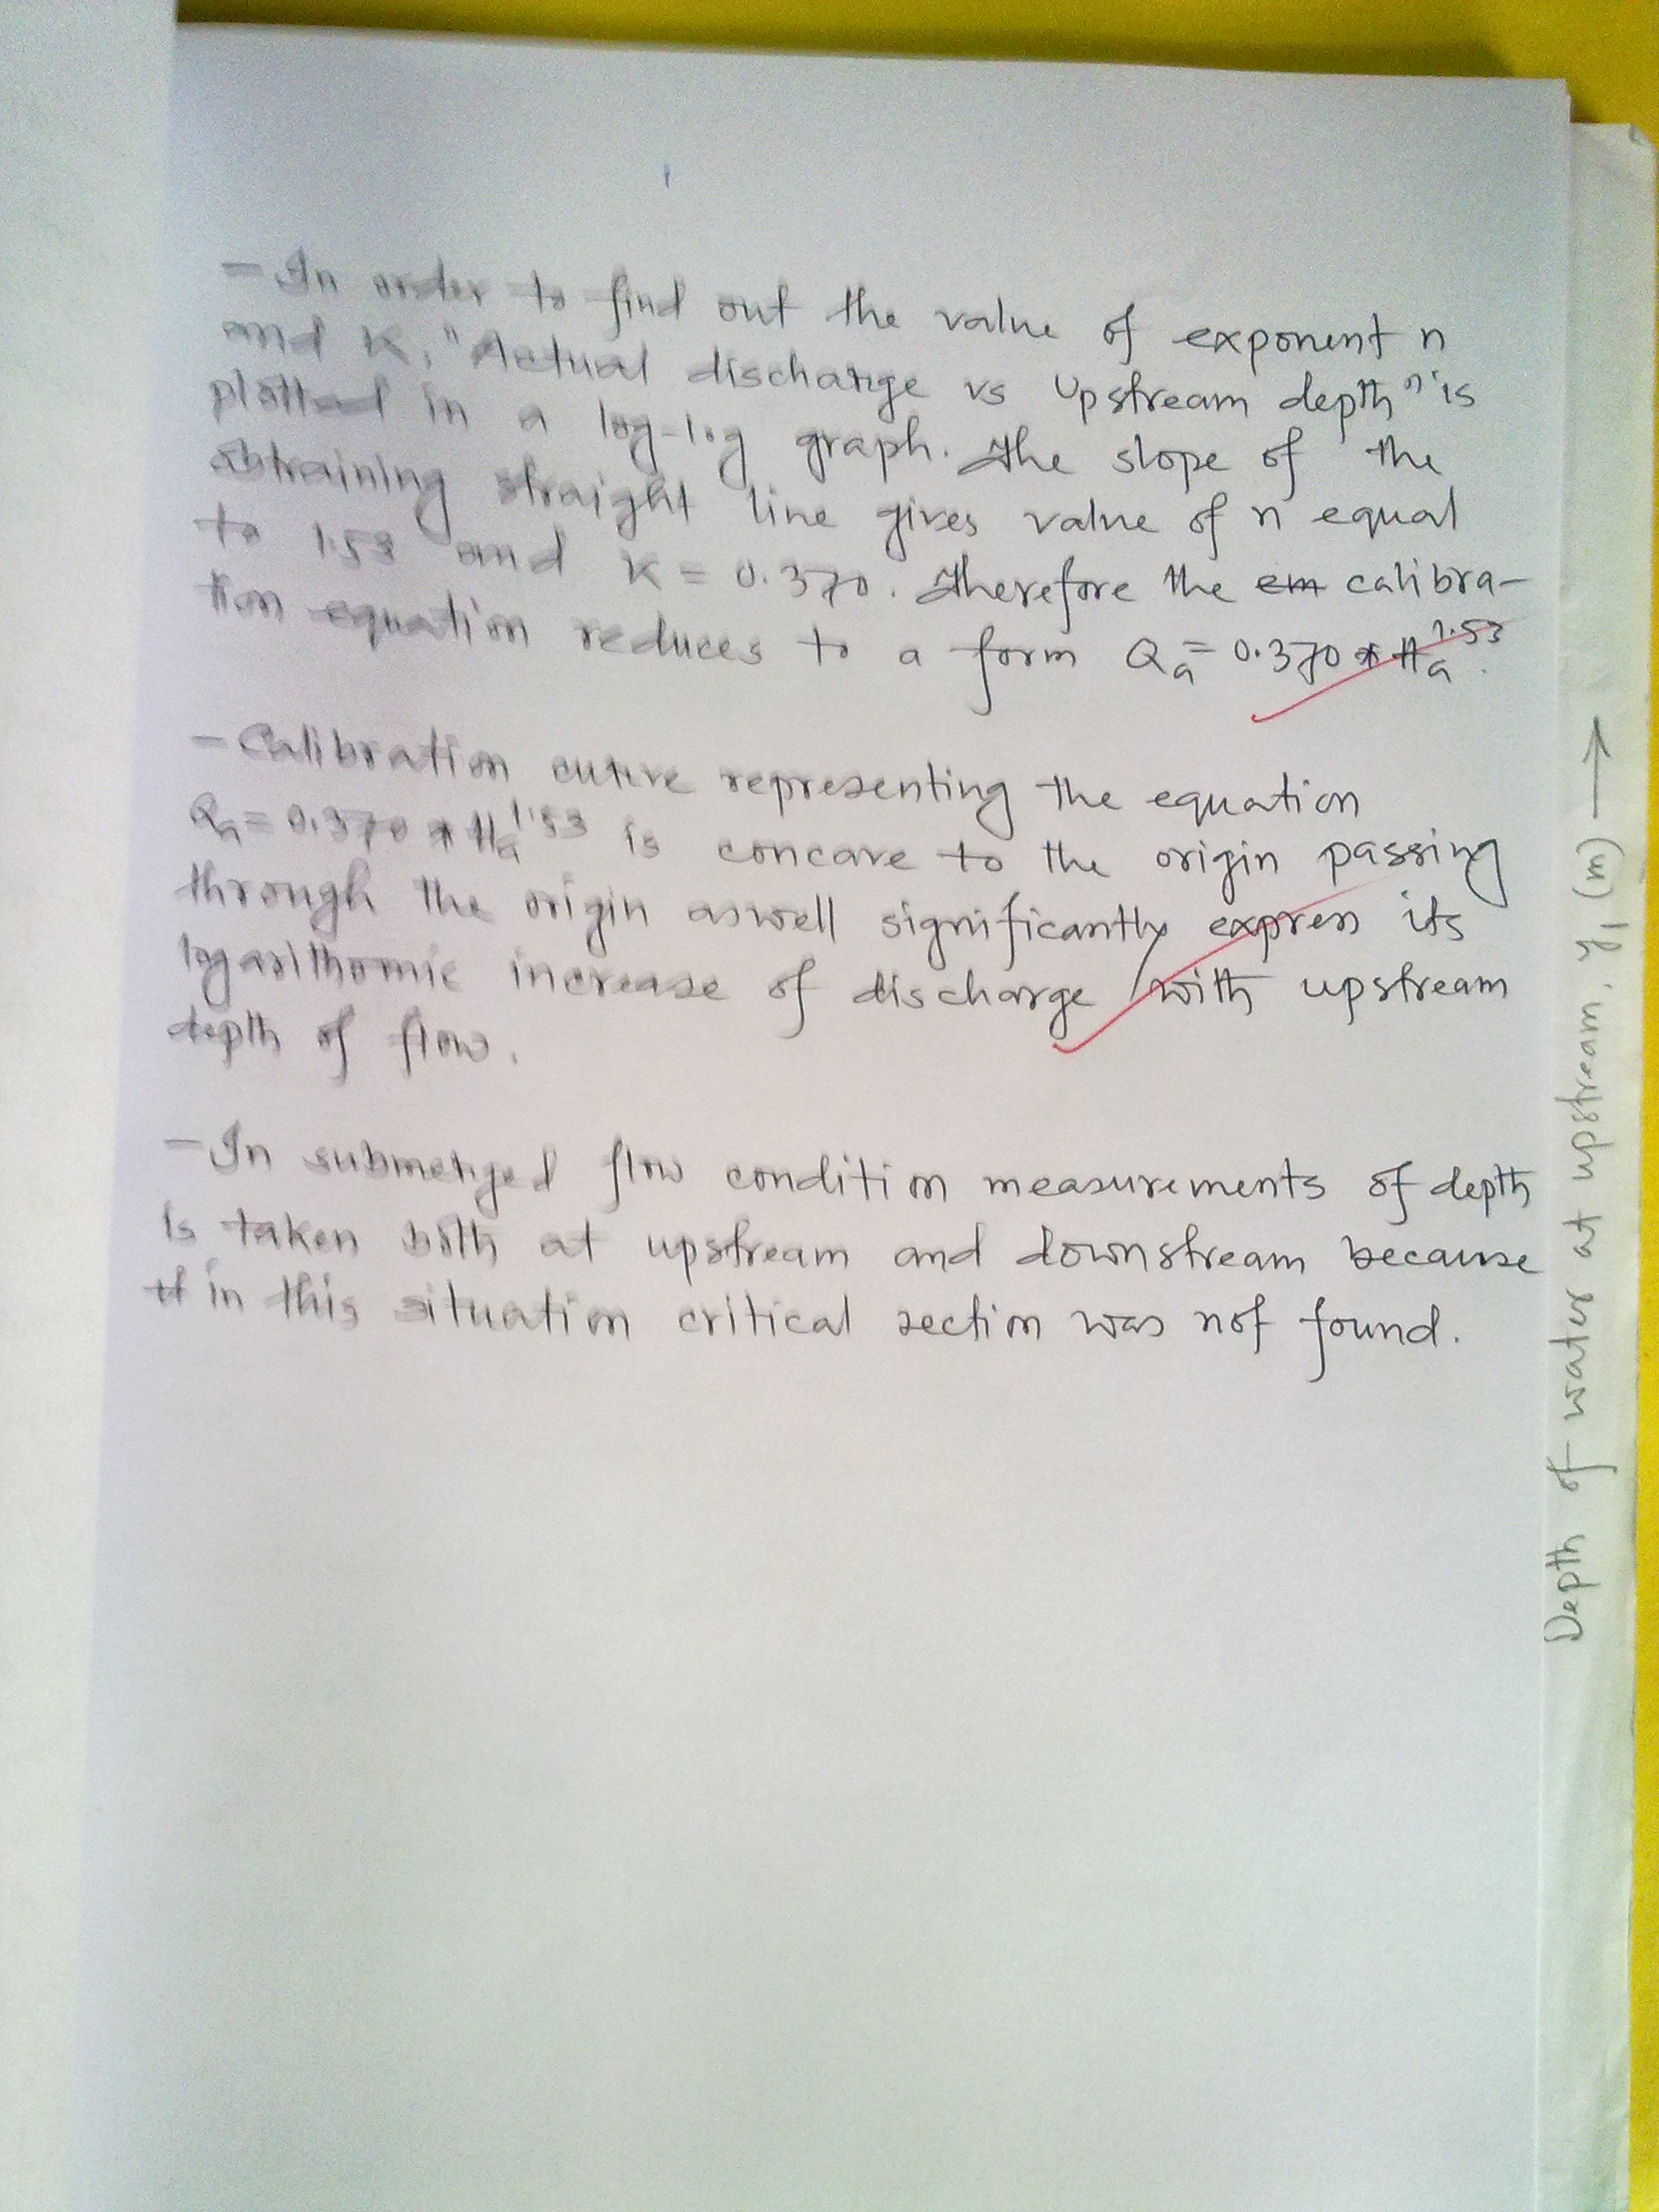 - In order to find out the value of exponent n
and K, "Actual discharge vs Upstream depth" is
plotted in a log-log graph. The slope of the
obtraining straight line gives value of n equal
to 1.53 and K = 0.370. Therefore the em calibra-
tion equation reduces to a form Qa = 0.370 * Ha^1.53.
- Calibration curve representing the equation
Qa = 0.370 * Ha^1.53 is concave to the origin passing
through the origin aswell significantly express its
logarithomic increase of discharge with upstream
depth of flow.
- In submerged flow condition measurements of depth
is taken both at upstream and downstream because
in this situation critical section was not found.
Depth of water at upstream, y1 (m) →